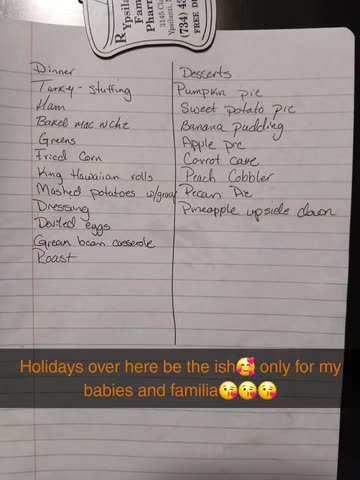 Ypsila
Fam
Pharm
3145 Cla
Ypsilanti, M
(734) 43
FREE DE
Dinner
Turky-stuffing
Ham
Baked mac nchz
Greens
Fried Corn
King Hawaiian rolls
Mashed potatoes w/gravy
Dressing
Deviled eggs
Grean bean casserole
Roast
Desserts
Pumpkin pie
Sweet potato pie
Banana pudding
Apple pie
Carrot cake
Peach Cobbler
Pecan Pie
Pineapple upside down
Holidays over here be the ish🥰 only for my
babies and familia😘😘😘